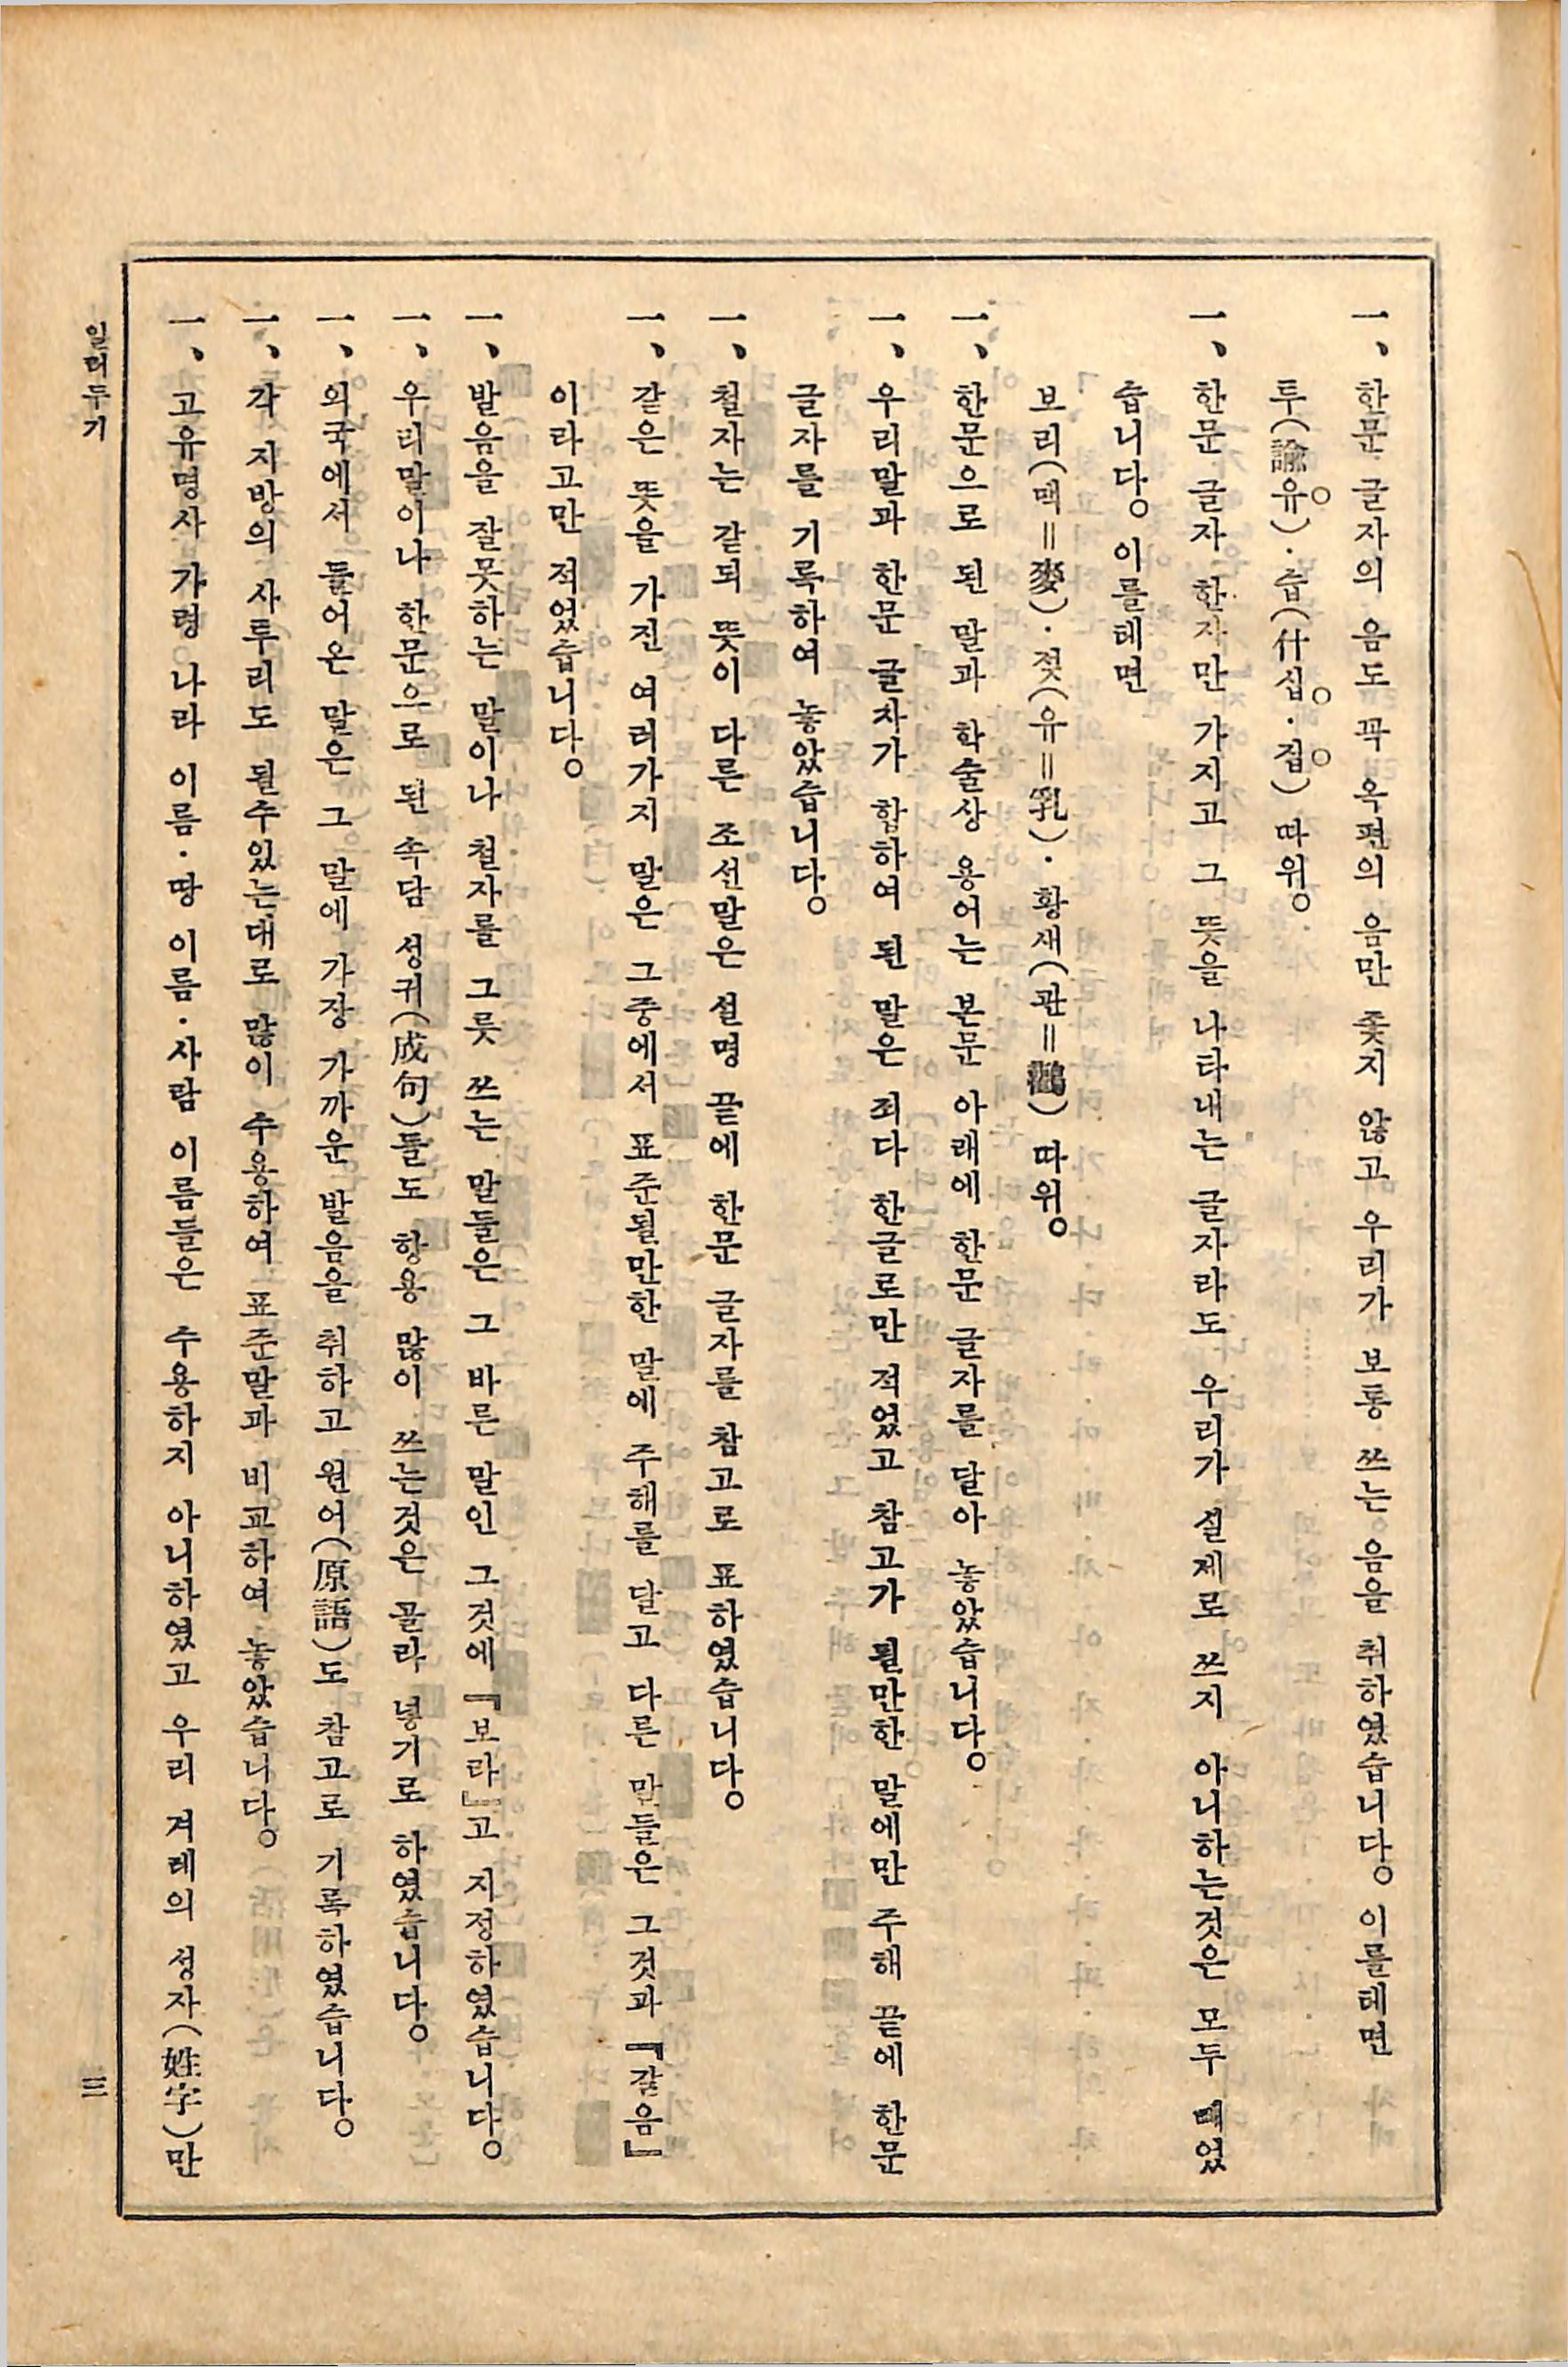 一、한문 글자의 음도 꼭 옥편의 음만 좇지 않고 우리가 보통 쓰는 음을 취하였습니다。 이를테면
투(諭유)·습(什십·집) 따위。
一、한문 글자 한자만 가지고 그 뜻을 나타내는 글자라도 우리가 실제로 쓰지 아니하는것은 모두 떼었
습니다。 이를테면
보리(맥=麥)·젖(유=乳)·황새(관=鸛) 따위。
一、한문으로 된 말과 학술상 용어는 본문 아래에 한문 글자를 달아 놓았습니다。
一、우리말과 한문 글자가 합하여 된 말은 죄다 한글로만 적었고 참고가 될만한 말에만 주해 끝에 한문
글자를 기록하여 놓았습니다。
一、철자는 같되 뜻이 다른 조선말은 설명 끝에 한문 글자를 참고로 표하였습니다。
一、같은 뜻을 가진 여러가지 말은 그중에서 표준될만한 말에 주해를 달고 다른 말들은 그것과 『같음』
이라고만 적었습니다。
一、발음을 잘못하는 말이나 철자를 그릇 쓰는 말들은 그 바른 말인 그것에 『보라』고 지정하였습니다。
一、우리말이나 한문으로 된 속담 성귀(成句)들도 항용 많이 쓰는것은 골라 넣기로 하였습니다。
一、외국에서 들어온 말은 그 말에 가장 가까운 발음을 취하고 원어(原語)도 참고로 기록하였습니다。
一、각 지방의 사투리도 될수있는대로 많이 수용하여 표준말과 비교하여 놓았습니다。
一、고유명사 가령 나라 이름·땅 이름·사람 이름들은 수용하지 아니하였고 우리 겨레의 성자(姓字)만
일러두기
三